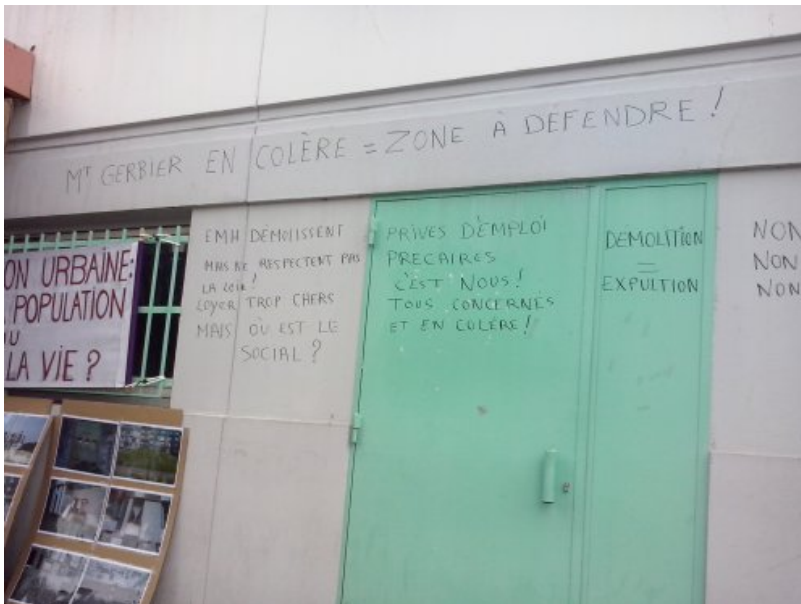 MT GERBIER EN COLÈRE = ZONE À DÉFENDRE !
ON URBAINE:
POPULATION
OU
LA VIE ?
EMH DÉMOLISSENT
MAIS NE RESPECTENT PAS
LA LOI !
LOYER TROP CHERS
MAIS OÙ EST LE
SOCIAL ?
PRIVÉS D'EMPLOI
PRECAIRES
C'EST NOUS !
TOUS CONCERNÉS
ET EN COLÈRE !
DEMOLITION
=
EXPULTION
NON
NON
NON